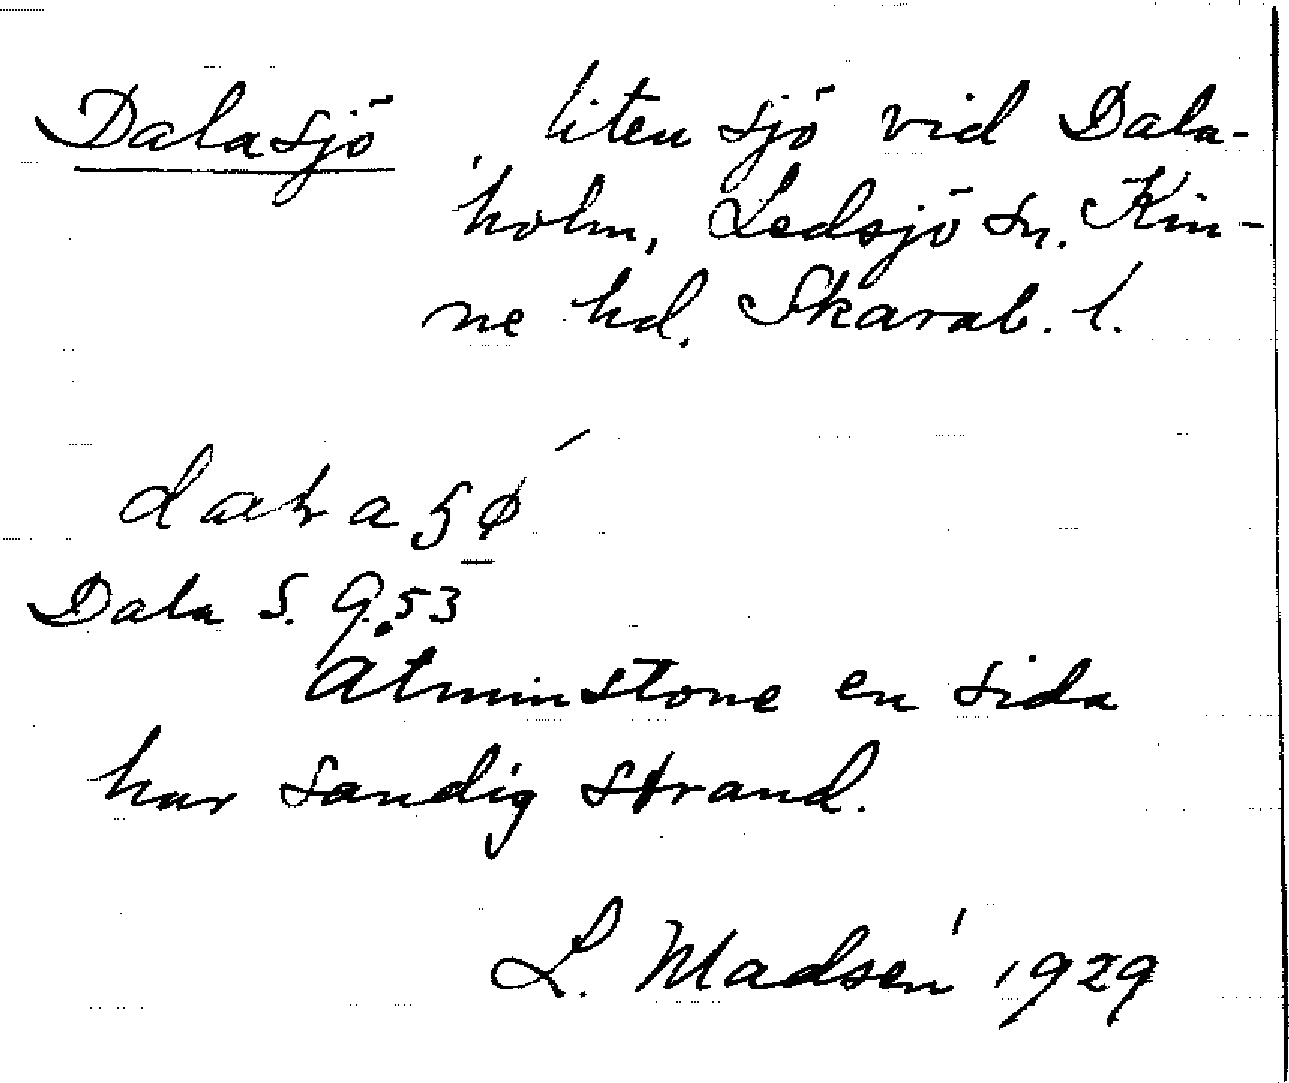 Dalasjö liten sjö vid Dala-
holm, Ledsjö sn. Kin-
ne hd. Skarab. l.
Dala S. 9.53
Åtminstone en sida
har sandig strand.
L. Madsén 1929